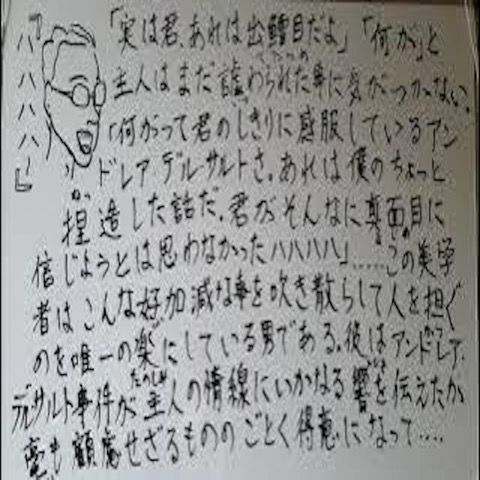 『ハハハハー』
「実は君、あれは出鱈目だよ」「何が」と
主人はまだ譎わられた事に気がつかない。
「何がって君のしきりに感服しているアン
ドレア デルサルトさ。あれは僕のちょっと
捏造した話だ。君がそんなに真面目に
信じようとは思わなかったハハハハ」……この美学
者はこんな好加減な事を吹き散らして人を担ぐ
のを唯一の楽にしている男である。彼はアンドレア、
デルサルト事件が主人の情線にいかなる響を伝えたか
毫も顧慮せざるもののごとく得意になって....